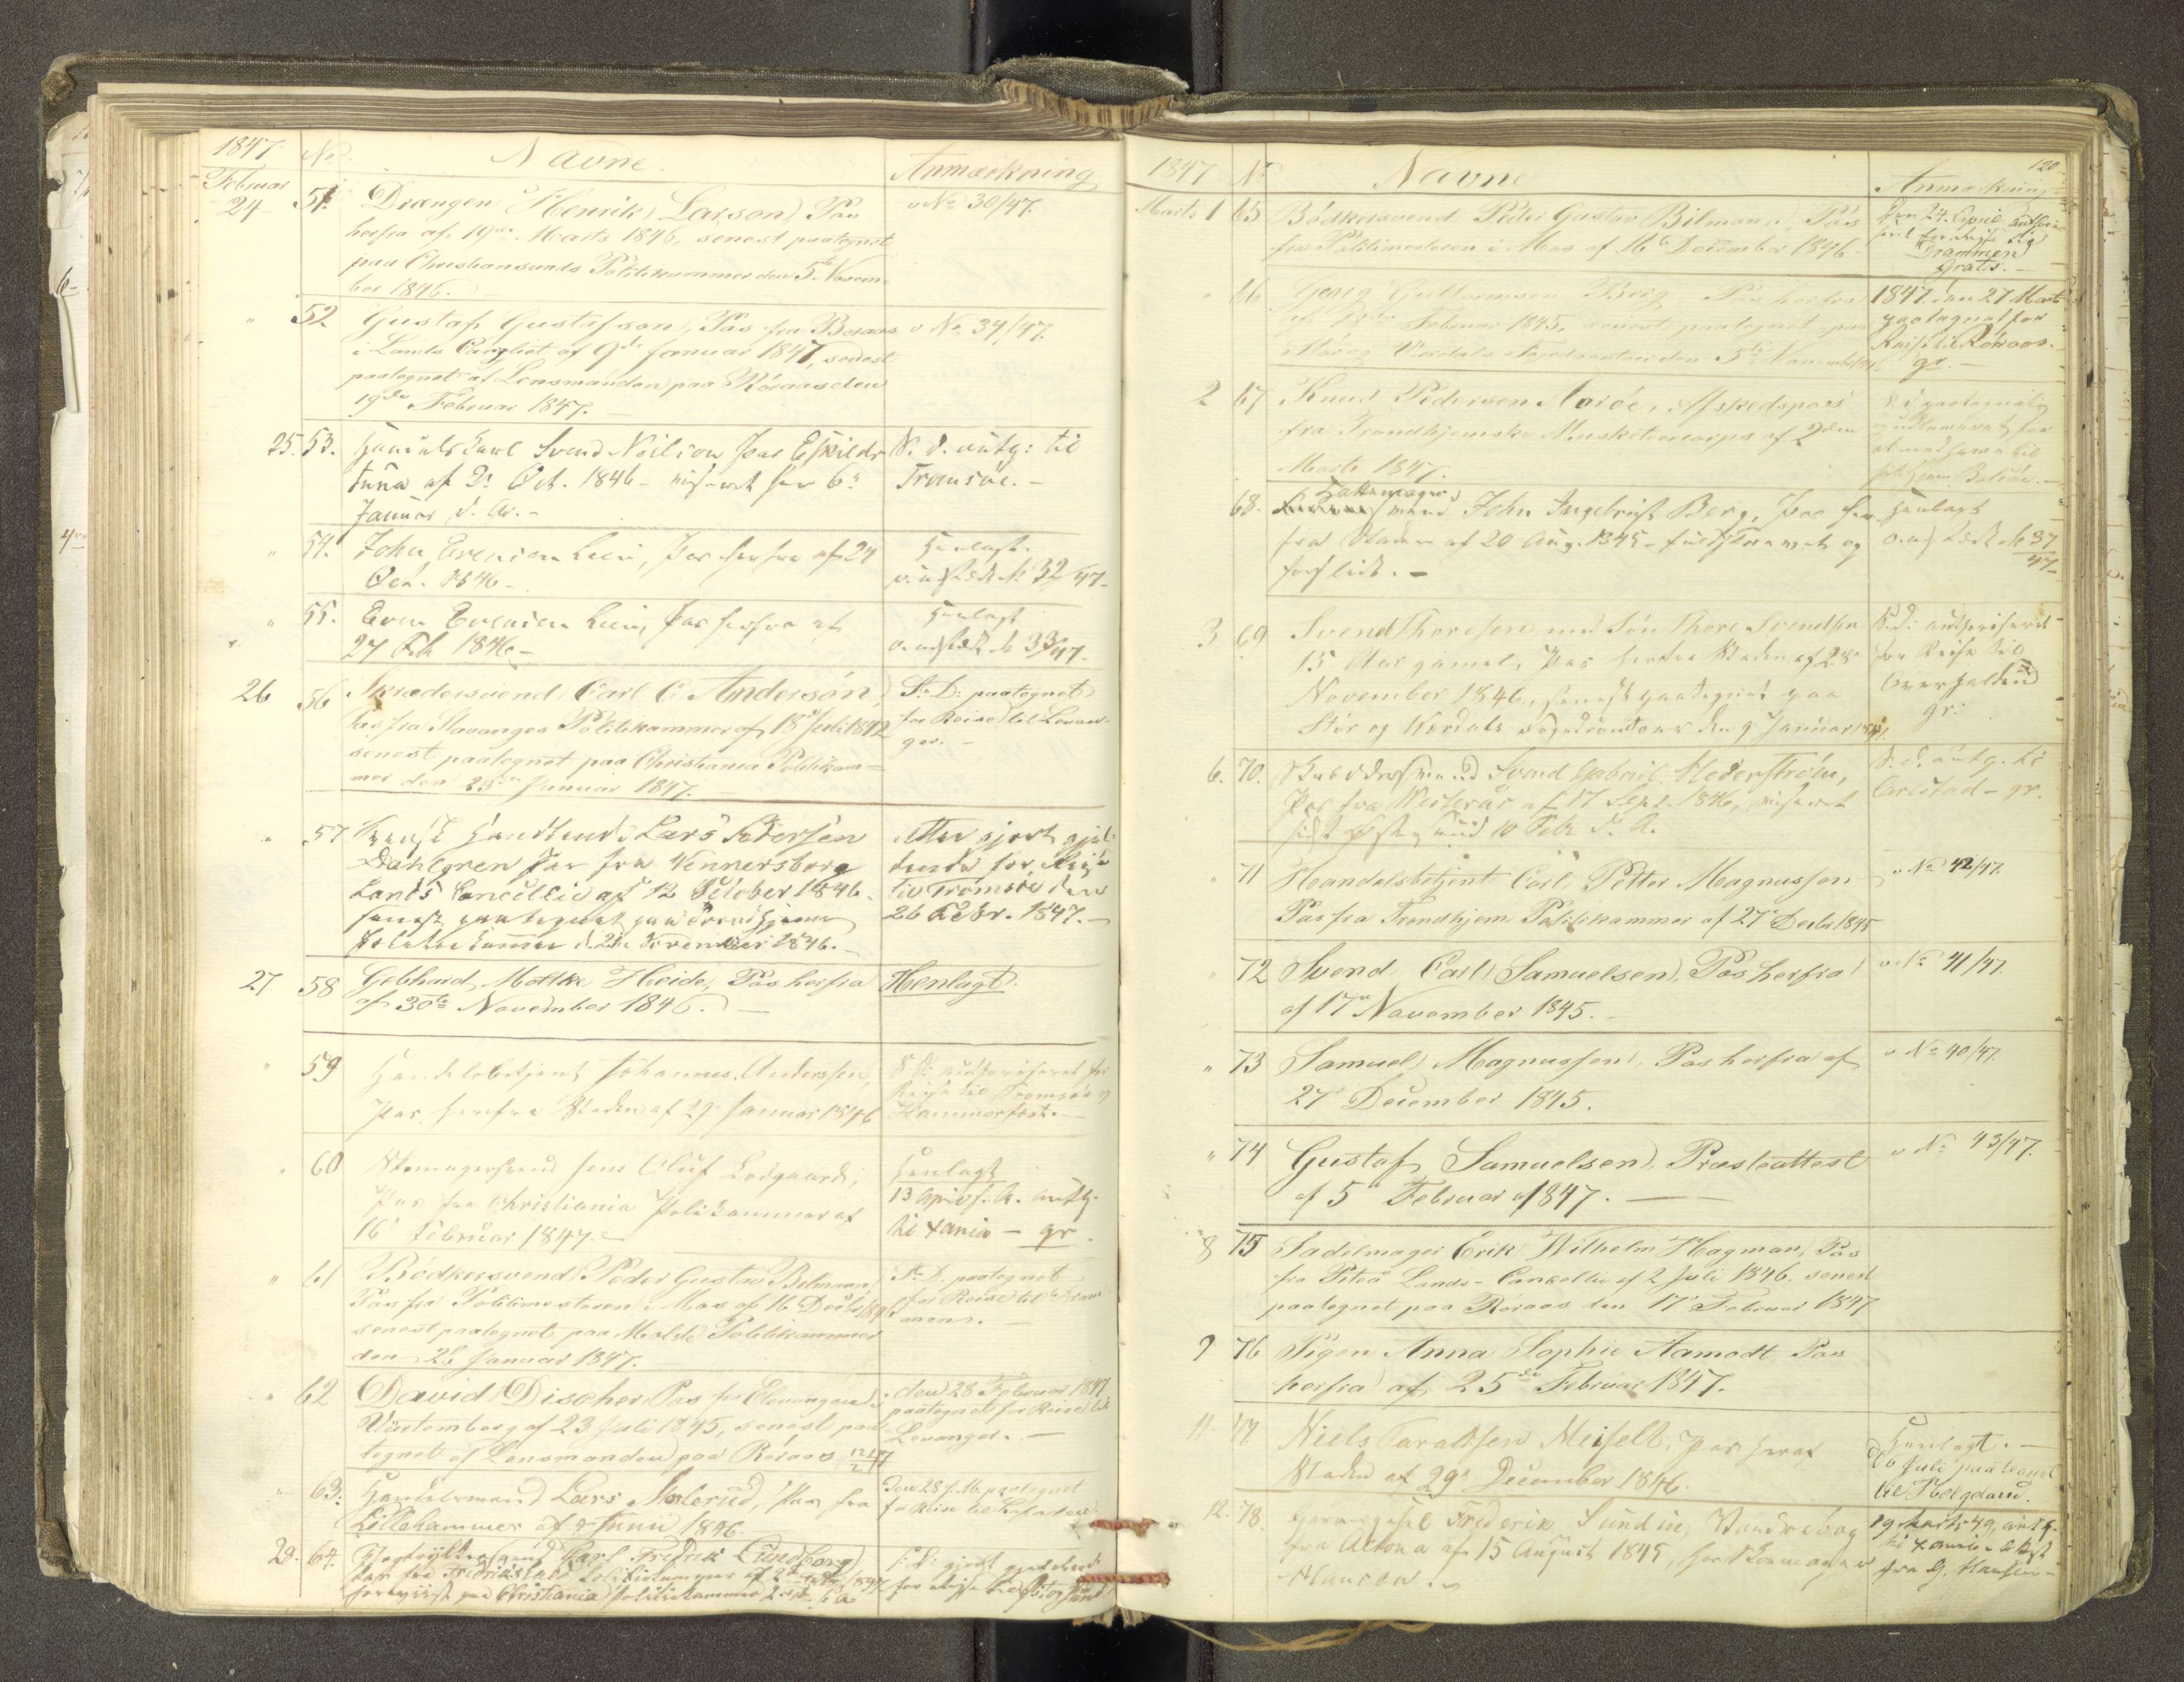 1847 No Navne Anmærkning
Februar
24 51. Drængen Henrik Larson, Pas
herfra af 19de Marts 1846, senest paategnet
paa Christiansunds Politikammer den 5te Novem-
ber 1846.
v No 30/47.
" 52 Gustaf Gustafson, Pas fra Boraas
i Lands Cancliet af 9de Januar 1847, senest
paategnet af Lensmanden paa Röraas den
19de Februar 1847.
v No 34/47.
25. 53. Handelskarl Svend Neilson Pas Eskilds
tuna af 2 Oct. 1846 -
Januar d. A. -
S. d. autg: til
Tromsöe. -
" 54. John Evensen Lien, Pas herfra af 24
Oct. 1846 -
Henlagt.
v. udstædt No 32/47 -
" 55. Even Evensen Lien, Pas herfra af
27 Feb 1846 -
Henlagt
v. udstædt No 33/47 -
26 56 Skrædersvend Carl C. Andersön,
Pas fra Stavanger Politikammer af 18de Juli 1842
senest paategnet paa Christiania Politikam-
mer den 25de Januar 1847. -
S: D: paategnet
for Reise til Levan-
ger. -
" 57 Svensk Handlende Lars Petersen
Dahlgren Pas fra Wennersborg
Lands Cancellie af 12 October 1846.
senest paategnet paa Trondhjems
Politikammer d. 21de November 1846. -
Atter gjort gjel-
dende for Reise
til Tromsöe den
26 Febr. 1847. -
27 58 Gebhard Moltke Heide, Pas herfra
af 30te November 1846. -
Henlagt.
" 59 Handelsbetjent Johannes Anderssen,
Pas herfra Staden af 29 Januar 1846
S. D: autoriseret for
Reise til Tromsöe og
Hammerfest. -
" 60 Skomagersvend Jens Oluf Lodgaard,
Pas fra Christiania Politikammer af
16 Februar 1847. -
Henlagt
13 April f. A. autg.
til Xania - gr.
" 61 Bödkersvend Peder Gustav Bilmann
Pas fra Politimesteren i Mos af 16 Decbr 1846
senest paategnet paa Molde Politikammer
den 28 Januar 1847.
S. D. paategnet
for Reise til Dram-
men. -
" 62 David Discher Pas fra Elvangen i
Würtemberg af 23 Juli 1845, senest paa-
tegnet af Lensmanden paa Röraas 12/2 47
den 28 Februar 1847
paategnet for Reise til
Levanger. -
" 63. Handelsmand Lars Molerud, Pas fra
Lillehammer af 9 Junii 1846.
Den 28 f. M. paategnet
for Reise til
28. 64. Bogtrykkersvend Carl Fredrik Lundborg
Pas fra Fredrikshald Politikammer af 2
forevist paa Christiania Politikammer
S: D: gjort gjeldende
for Reise til Östersund
120
1847 No Navne Anmærkning
Marts 1 65 Bödkersvend Peter Gustav Bilmann, Pas
fra Politimesteren i Mos af 16de December 1846
Den 27 April authori-
seret for Reise til
Drammen
Gratis. -
" 66 Georg Guttormsen Berg Pas herfra
af 18de Februar 1845, senest paategnet paa
Stör og Værdals Fogedcontoir den 5te November 1846
1847 den 27 Marts
paategnet for
Reise til Röraas.
gr. -
2 67 Knud Pedersen Moröe, Afskedspas
fra Trondhjemske Musketeercorps af 2den
Marts 1847.
S. d. paategnet og
udleveret for
68. Hattemager
mand John Ingebrigt Berg, Pas her
fra Staden af 20 Aug. 1845 -
forslidt. -
Henlagt
v. udstædt No 37/47 -
3 69 Svend Thoresen med Sön Thore Svendsen
15 Aar gamel, Pas herfra Staden af 28
November 1846, senest paategnet paa
Stör og Værdals Fogedcontoir den 9 Januar 1847.
S. d: authoriseret
for Reise til
Overhalden
gr:
6. 70. Svend Gabriel Hederström,
Pas fra Westerås af 17 Sept 1846,
10 Feb d. A.
S. d. autg. til
Carlstad - gr.
" 71 Handelsbetjent Carl Petter Magnussen
Pas fra Trondhjem Politikammer af 27 Decbr 1845
v No 42/47.
" 72 Svend Carl Samuelsen, Pas herfra
af 17de November 1845.
v No 41/47.
" 73 Samuel Magnussen, Pas herfra af
27 December 1845.
v No 40/47.
" 74 Gustaf Samuelsen, Præsteattest
af 5te Februar 1847. -
v No 43/47.
8 75 Sadelmager Erik Wilhelm Hagman, Pas
fra Piteå Lands-Cancellie af 2 Juli 1846. senest
paategnet paa Röraas den 17 Februar 1847
9 76 Pigen Anna Sophie Aamodt Pas
herfra af 25de Februar 1847.
11 77. Niels Taraldsen Meisell, Pas heraf
Staden af 29 December 1846.
Henlagt. -
d. 6 Juli paategnet
til Helgeland.
12. 78. Garversvend Frederik Sundin, Vandrebog
fra Altona af 15 August 1845, hos Skomager
Hansen.
19 Marts 49, autg.
til Xania
fra G. Hansen -